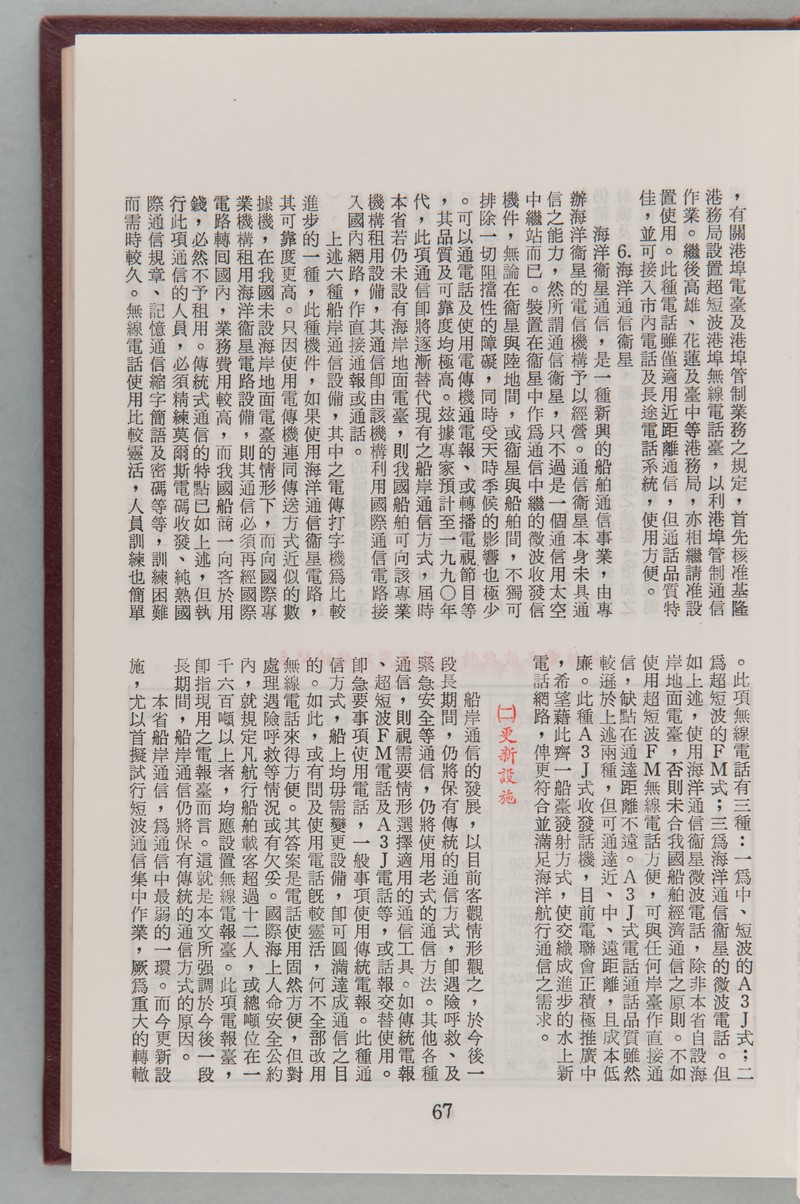 ，有關港埠電臺及港埠管制業務之規定，首先核准基隆
港務局設置超短波港埠無線電話臺，以利港埠管制通信
作業。繼後高雄、花蓮及臺中等港務局，亦相繼請准設
置使用。此種電話雖僅適用近距離通信，但通話品質特
佳，並可接入市內電話及長途電話系統，使用方便。
6.海洋通信衞星
海洋衞星通信，是一種新興的船舶通信事業，由專
辦海洋衞星的電信機構予以經營。通信衞星本身未具通
信之能力，然所謂通信衞星，只不過是一個通信用太空
中繼站而已。裝置在衞星中作爲通信中繼的微波收發信
機件，無論在衞星與陸地間，或衞星與船舶間，不獨可
排除一切阻擋性的障礙，同時受天時季候的影響也極少
。可以通電話及使用電傳機通電報、或轉播電視節目等
，其品質及可靠度均極高。玆據專家預計至一九九〇年
代，此項通信卽將逐漸替代現有之船岸通信方式，屆時
本省若仍未設有海岸地面電臺，則我國船舶可向該專業
機構租用設備，其通信卽由該機構利用國際通信電路接
入國內網路，作直接通報或通話。
上述六種船岸通信設備，其中之電傳打字機爲比較
進步的一種，此種機件，如果使用海洋通信衞星電路，
其可靠度更高。只因使用電傳機連同傳送方式近似的數
據機，在我國未設海岸地面電臺的情形下，而向國際專
業機構租用海洋衞星電路設備，則其通信必須再經國際
電路轉回國內，業務費用較高，而我國船商一向吝於用
錢，必然不予租用。傳統式通信的特點已如上述，但執
行此項通信的人員，必須精練莫爾斯電碼收發、純熟國
際通信規章、記憶通信縮字簡語及密碼等等，訓練困難
而需時較久。無線電話使用比較靈活，人員訓練也簡單
。此項無線電話有三種：一爲中、短波的A3J式；二
爲超短波的FM式；三爲海洋通信衞星的微波電話。但
如上述，使用海洋通信衞星微波電話，除非本省自設海
岸地面電臺，否則未合我國船舶經濟通信之原則。不如
使用超短波FM無線電話方便，可與任何岸臺作直接通
信，缺點在通達距離不遠。A3J式電話通話品質雖然
較遜於上述兩種，但可通達近、中、遠距離，且成本低
廉。此種A3J式收發話機，目前電聯會正積極推廣中
，希望藉此齊一船臺發射方式，使交織成進步的水上新
電話網路，俾更符合並滿足海洋航行通信之需求。
㈡更新設施
船岸通信的發展，以目前客觀情形觀之，於今後一
段長期間，仍將保有傳統的通信方式，卽遇險呼救、及
緊急安全等通信，仍將使用老式的通信方法。其他各種
通信，則視需要情形選擇適用的通信工具。如傳統電報
、超短波FM電話及A3J電話等，或話報交替使用。
卽急要事項使用電話，一般事項使用傳統電報。此種通
信方式，船上均毋需變更設備，卽可圓滿達成通信之目
的。如此，或有問及使用電話旣較靈活，何不全部改用
無線電話來得方便。其答案是電話使用固然方便，但對
處理遇險呼救等情況或有欠妥。國際海上人命安全公約
內，就規定凡航行船舶載客超過十二人，或總噸位在一
千六百噸以上者，均應設置無線電報臺。此項電報臺，
卽指現用之電報臺而言。這就是本文所强調於今後一段
長期間，船岸通信仍將保有傳統的通信方式的原因。
本省船岸通信，爲通信中最弱的一環。而今更新設
施，尤以首擬試行短波通信集中作業，厥爲重大的轉轍
67